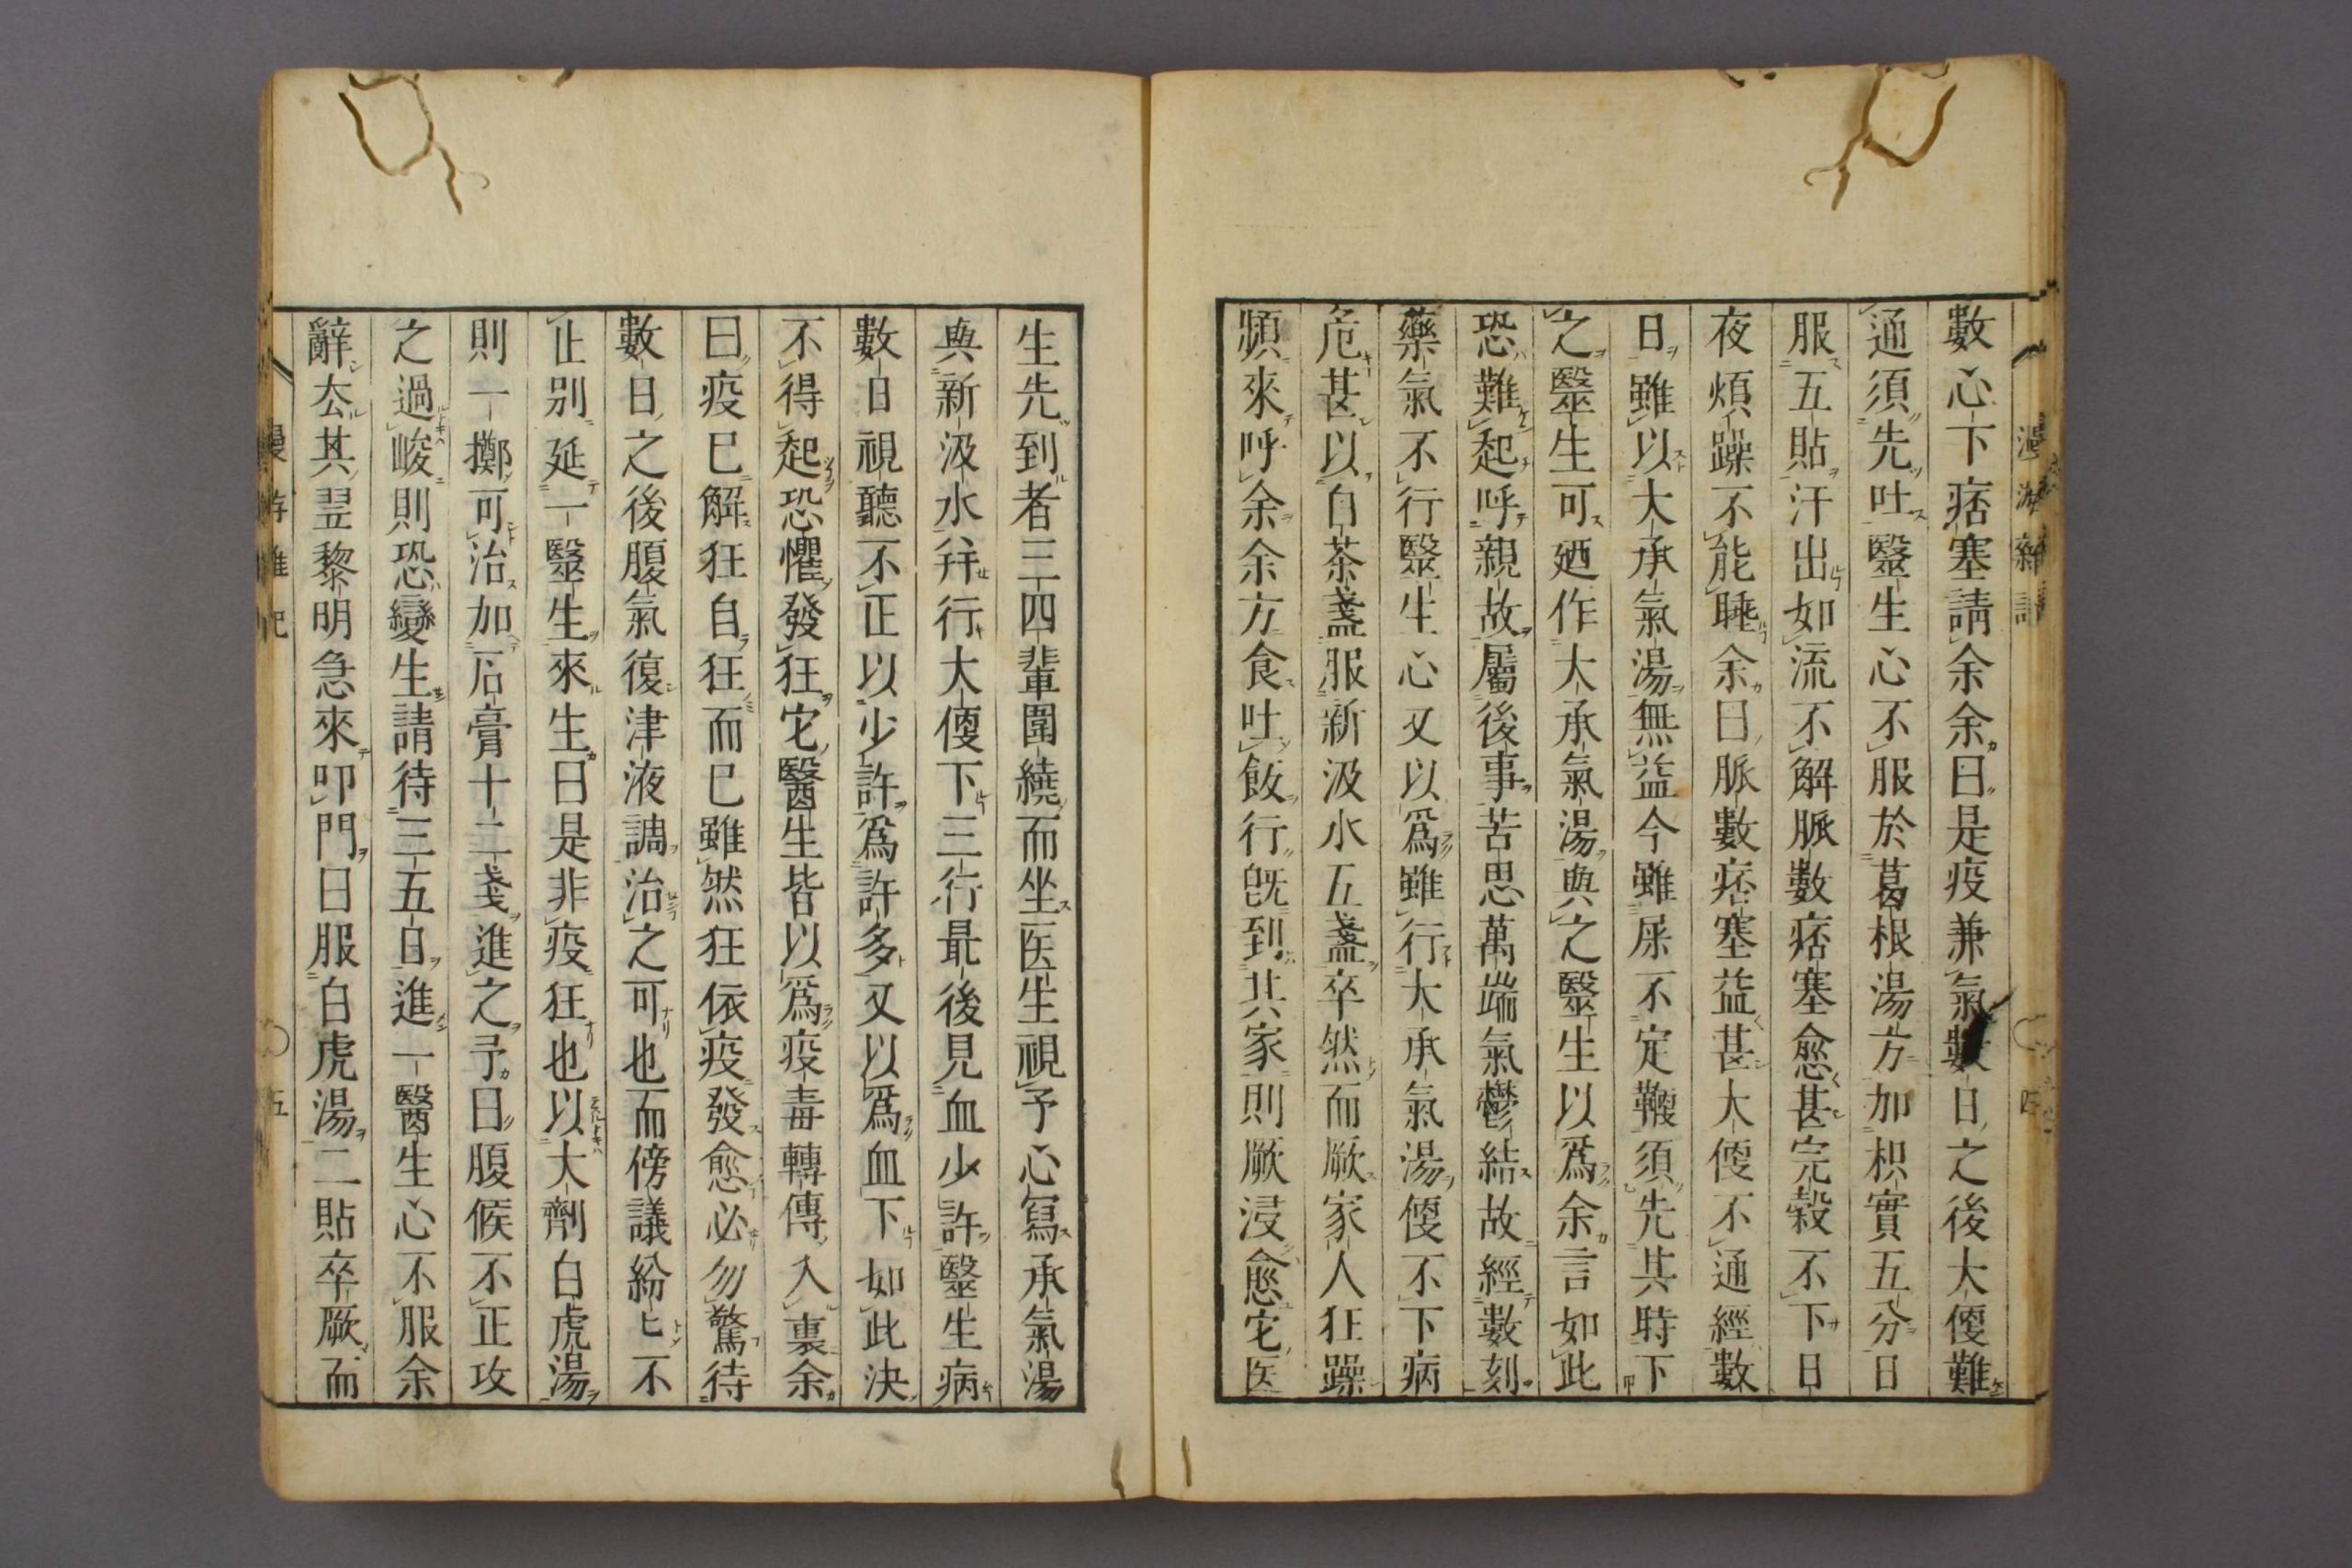 漫游雜記
四
數心下痞塞請余余曰是疫兼氣數日之後大便難
通須先吐醫生心不服於葛根湯方加枳實五分日
服五貼汗出如流不解脈數痞塞愈甚完穀不下日
夜煩躁不能睡余曰脈數痞塞益甚大便不通經數
日雖以大承氣湯無益今雖屎不定鞕須先其時下
之醫生可廼作大承氣湯與之醫生以爲余言如此
恐難起呼親故屬後事苦思萬端氣鬱結故經數刻
藥氣不行醫生心又以爲雖行大承氣湯便不下病
危甚以白茶盞服新汲水五盞卒然而厥家人狂躁
頻來呼余余方食吐飯行旣到其家則厥浸愈宅医
生先到者三四輩圍繞而坐医生視予心寫承氣湯
與新汲水幷行大便下三行最後見血少許醫生病
數日視聽不正以少許爲許多又以爲血下如此決
不得起恐懼發狂宅醫生皆以爲疫毒轉傳入裏余
曰疫已解狂自狂而已雖然狂依疫發愈必勿驚待
數日之後腹氣復津液調治之可也而傍議紛〻不
止別延一醫生來生曰是非疫狂也以大劑白虎湯
則一擲可治加石膏十二戔進之予曰腹候不正攻
之過峻則恐變生請待三五日進一醫生心不服余
辭厺其翌黎明急來叩門曰服白虎湯二貼卒厥而
漫游雜記
五